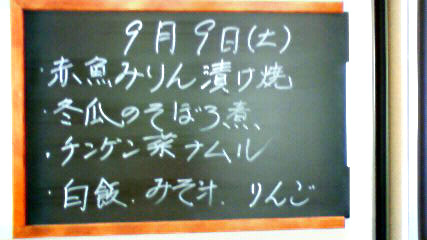 9月9日(土)
・赤魚みりん漬け焼
・冬瓜のそぼろ煮
・チンゲン菜ナムル
・白飯.みそ汁.りんご